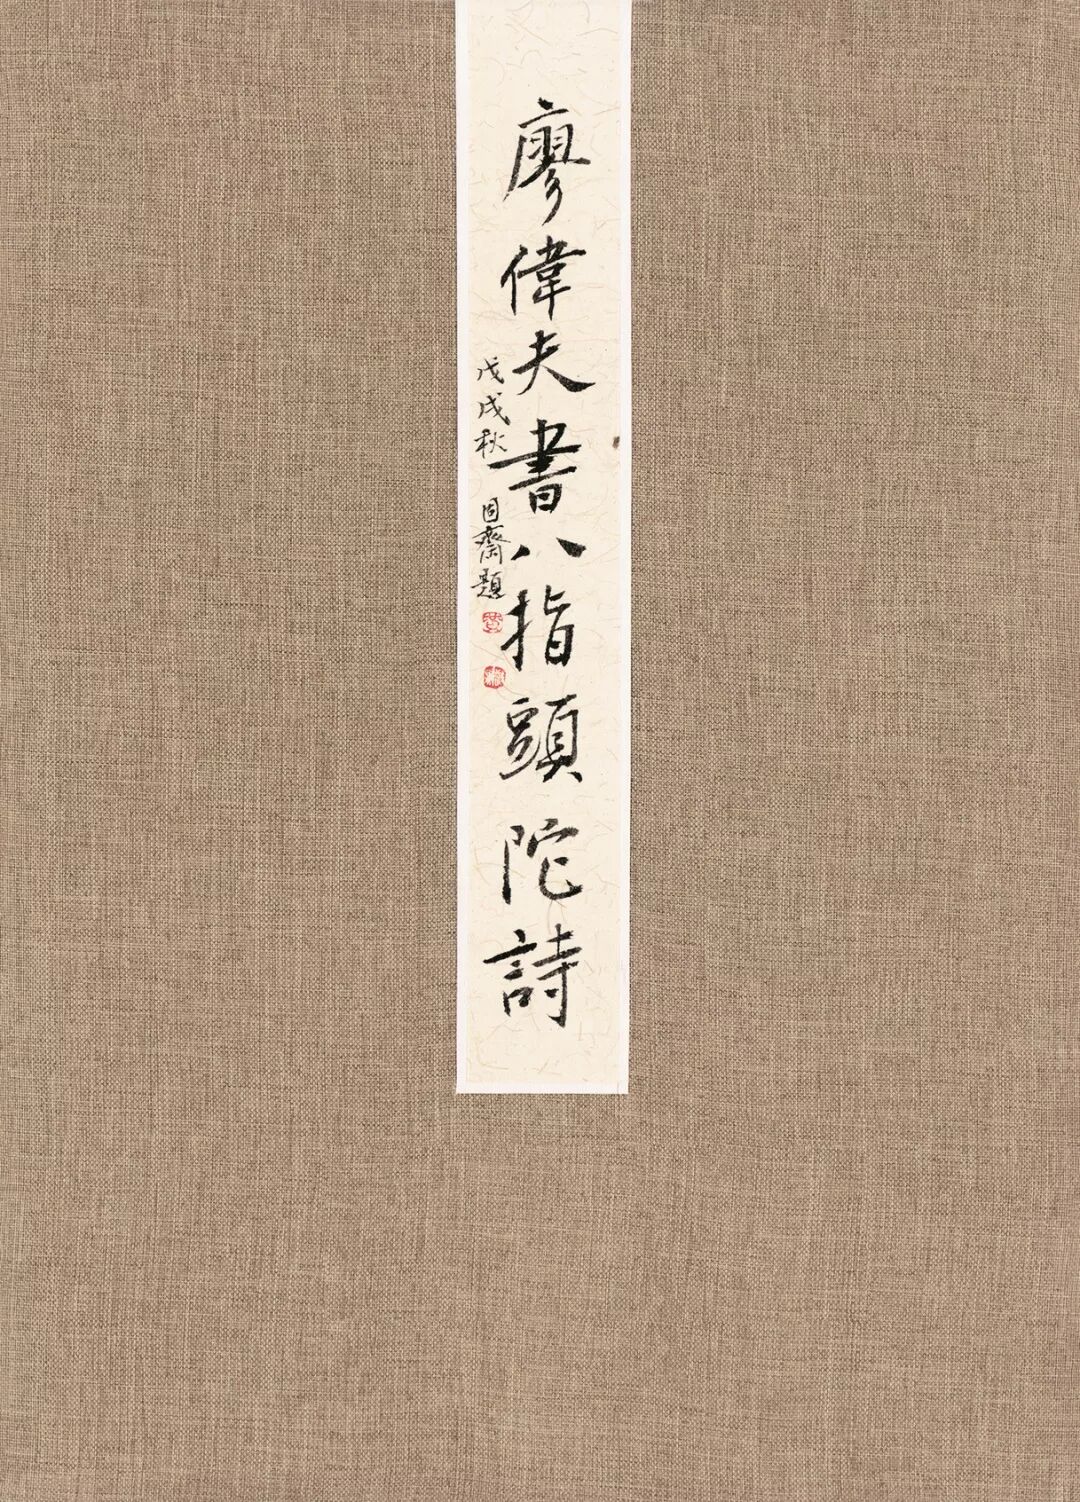 廖偉夫書八指頭陀詩
戊戌秋 因齋題